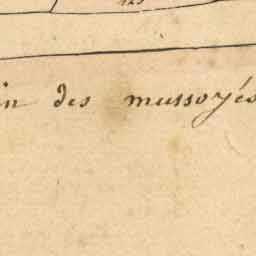 125
in des mussoyés